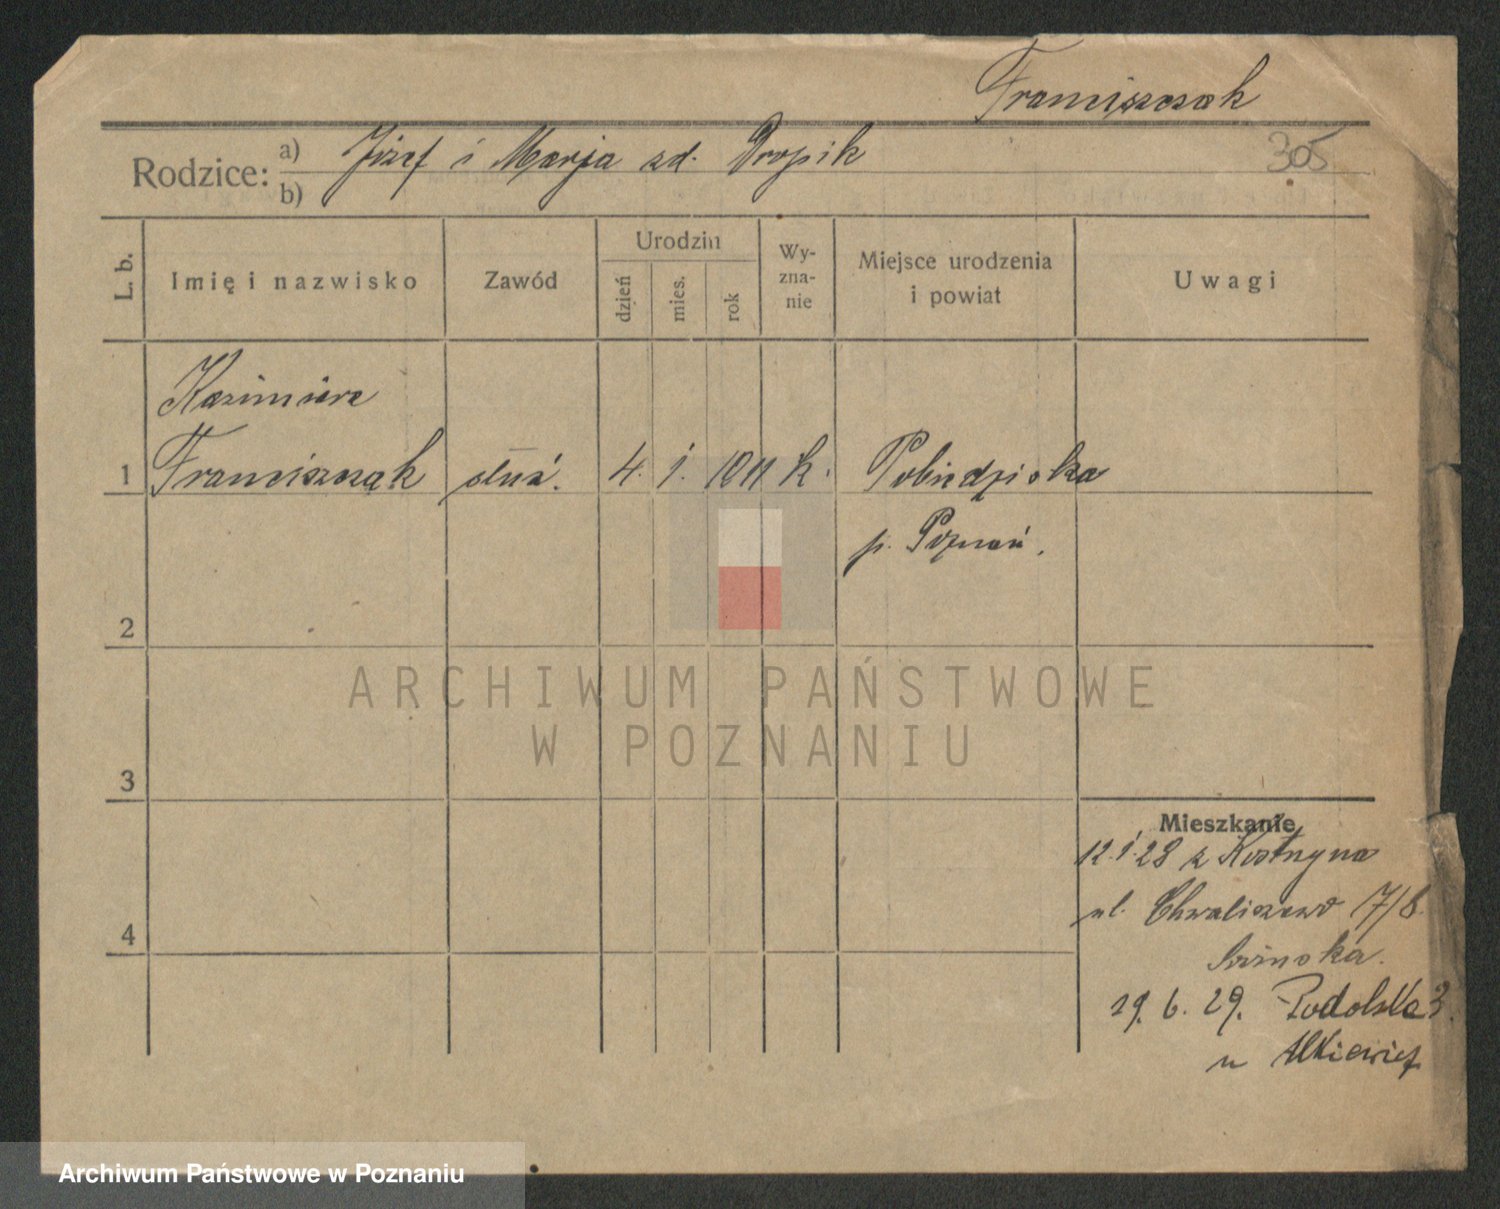 Franciszczak
305
Rodzice: a) Józef i Marja zd. Dropik
b)
L. b. Imię i nazwisko Zawód Urodzin dzień mies. rok Wy-zna-nie Miejsce urodzenia i powiat Uwagi
Kazimiera
1 Franciszczak służ. 4. 1. 1911 k. Pobiedziska
p. Poznań.
2
ARCHIWUM PAŃSTWOWE
W POZNANIU
3
Mieszkanie
12.1.28 z Kostrzyna
ul. Chwaliszewo 17/8.
4
29. 6. 29. Podolska 3.
u
Archiwum Państwowe w Poznaniu